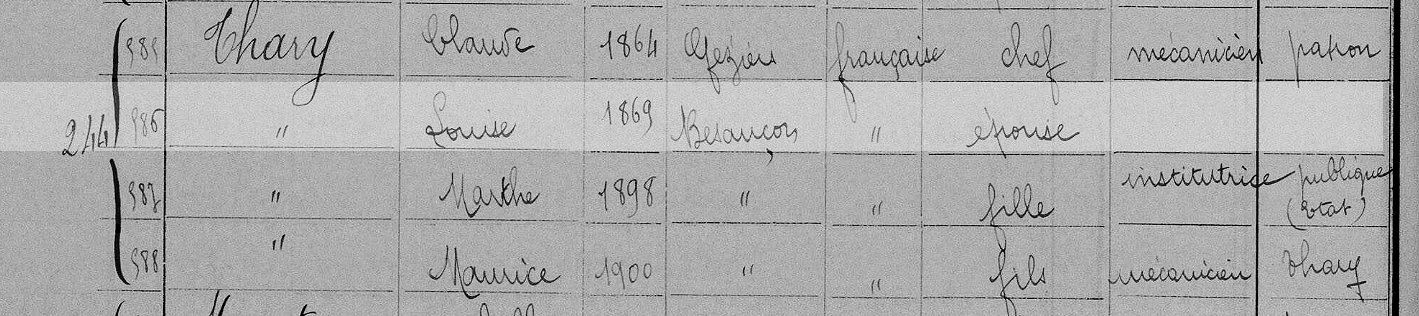 985 Thary Claude 1864 Gézier française chef mécanicien patron
244 986 " Louise 1869 Besançon " épouse
987 " Marthe 1898 " " fille institutrice publique (Etat)
988 " Maurice 1900 " " fils mécanicien Thary